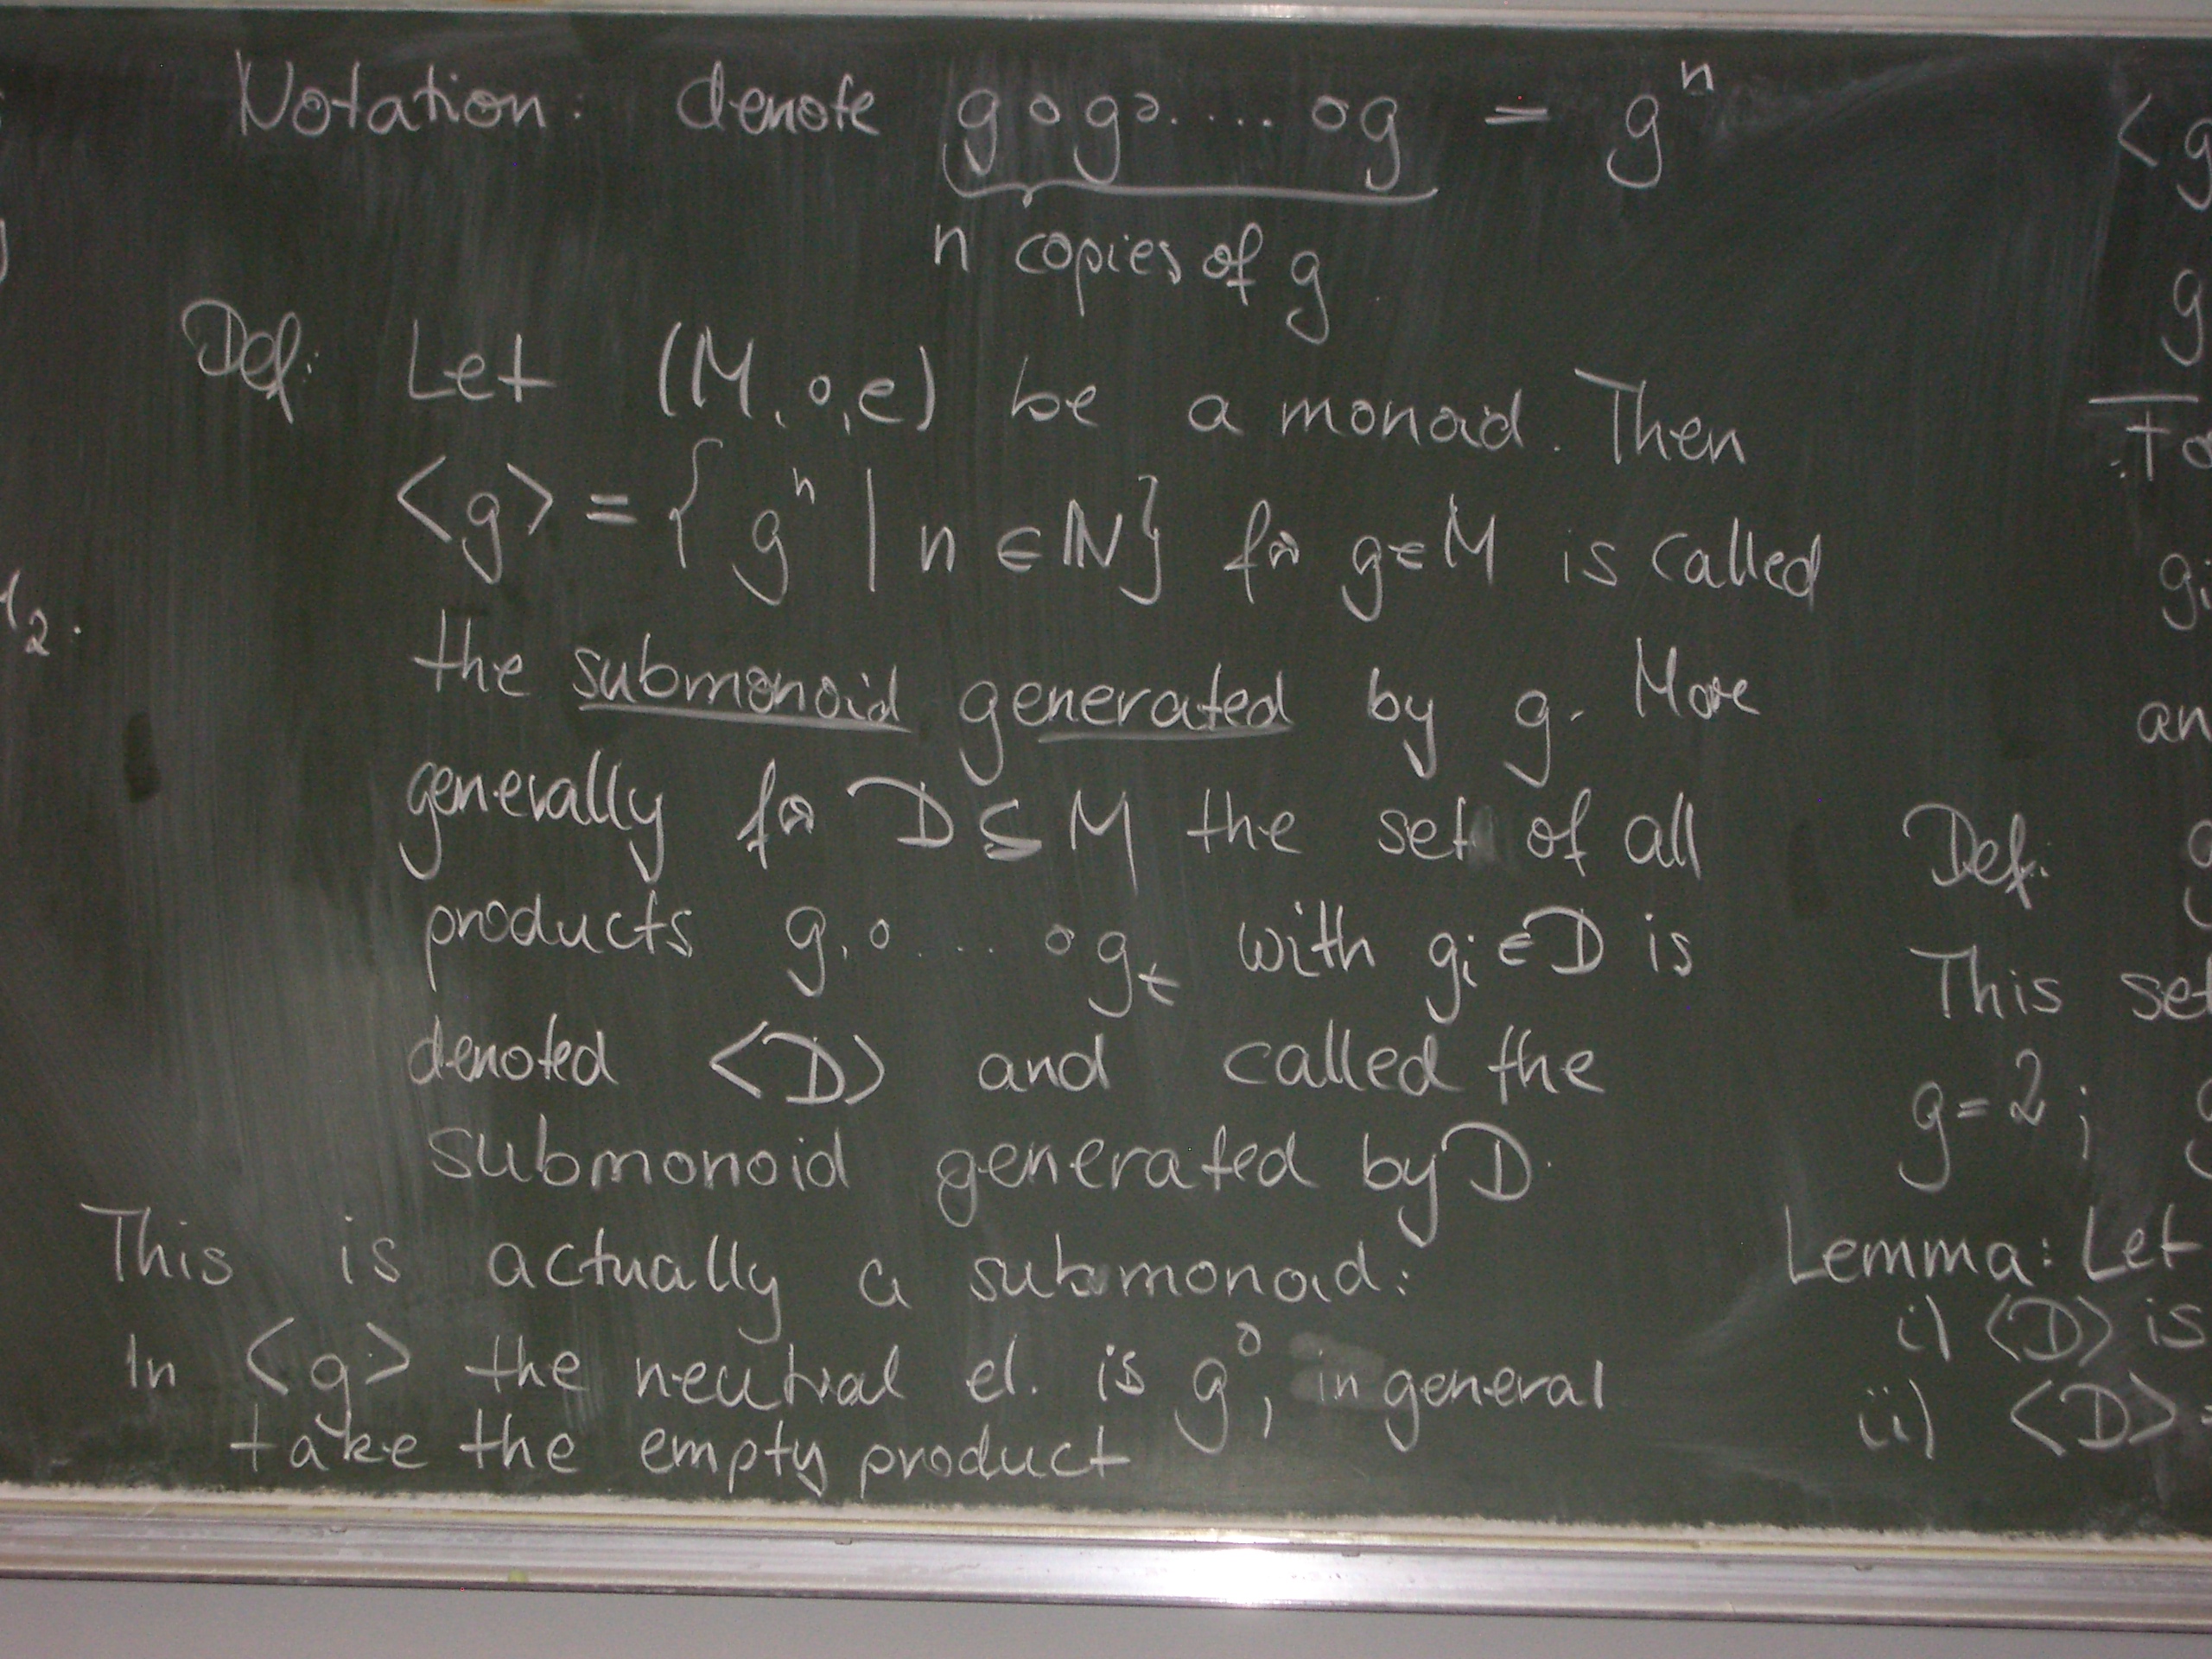 Notation: denote g∘g∘.....∘g = gⁿ
n copies of g
Def: Let (M,∘,e) be a monoid. Then
<g> = { gⁿ | n ∈ ℕ} for g∈M is called
the submonoid generated by g. More
generally for D ⊆ M the set of all
products g₁∘....∘gₜ with gᵢ∈D is
denoted <D> and called the
submonoid generated by D.
This is actually a submonoid:
In <g> the neutral el. is g⁰, in general
take the empty product
2.
<g
g
gi
an
Def:
This set
g=2;
Lemma: Let
i) <D> is
ii) <D>